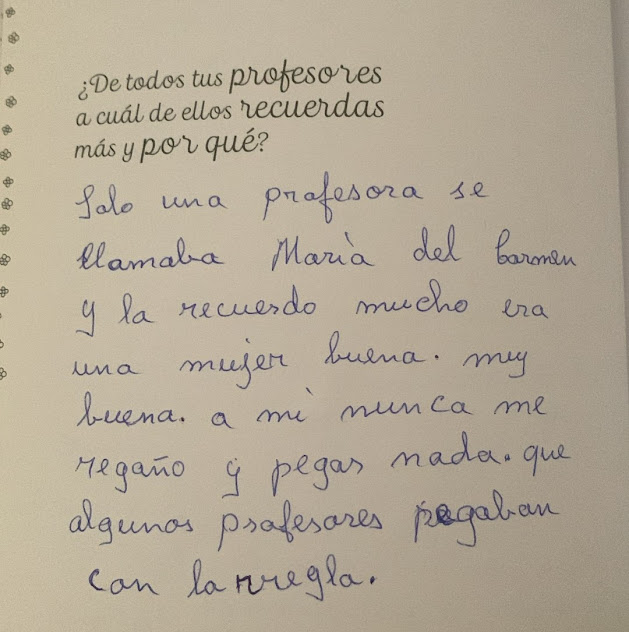 ¿De todos tus profesores
a cuál de ellos recuerdas
más y por qué?
Solo una profesora se
llamaba Marià del Carmen
y la recuerdo mucho era
una mujer buena. muy
buena. a mì nunca me
regaño y pegas nada. que
algunos profesores pegaban
con la rregla.